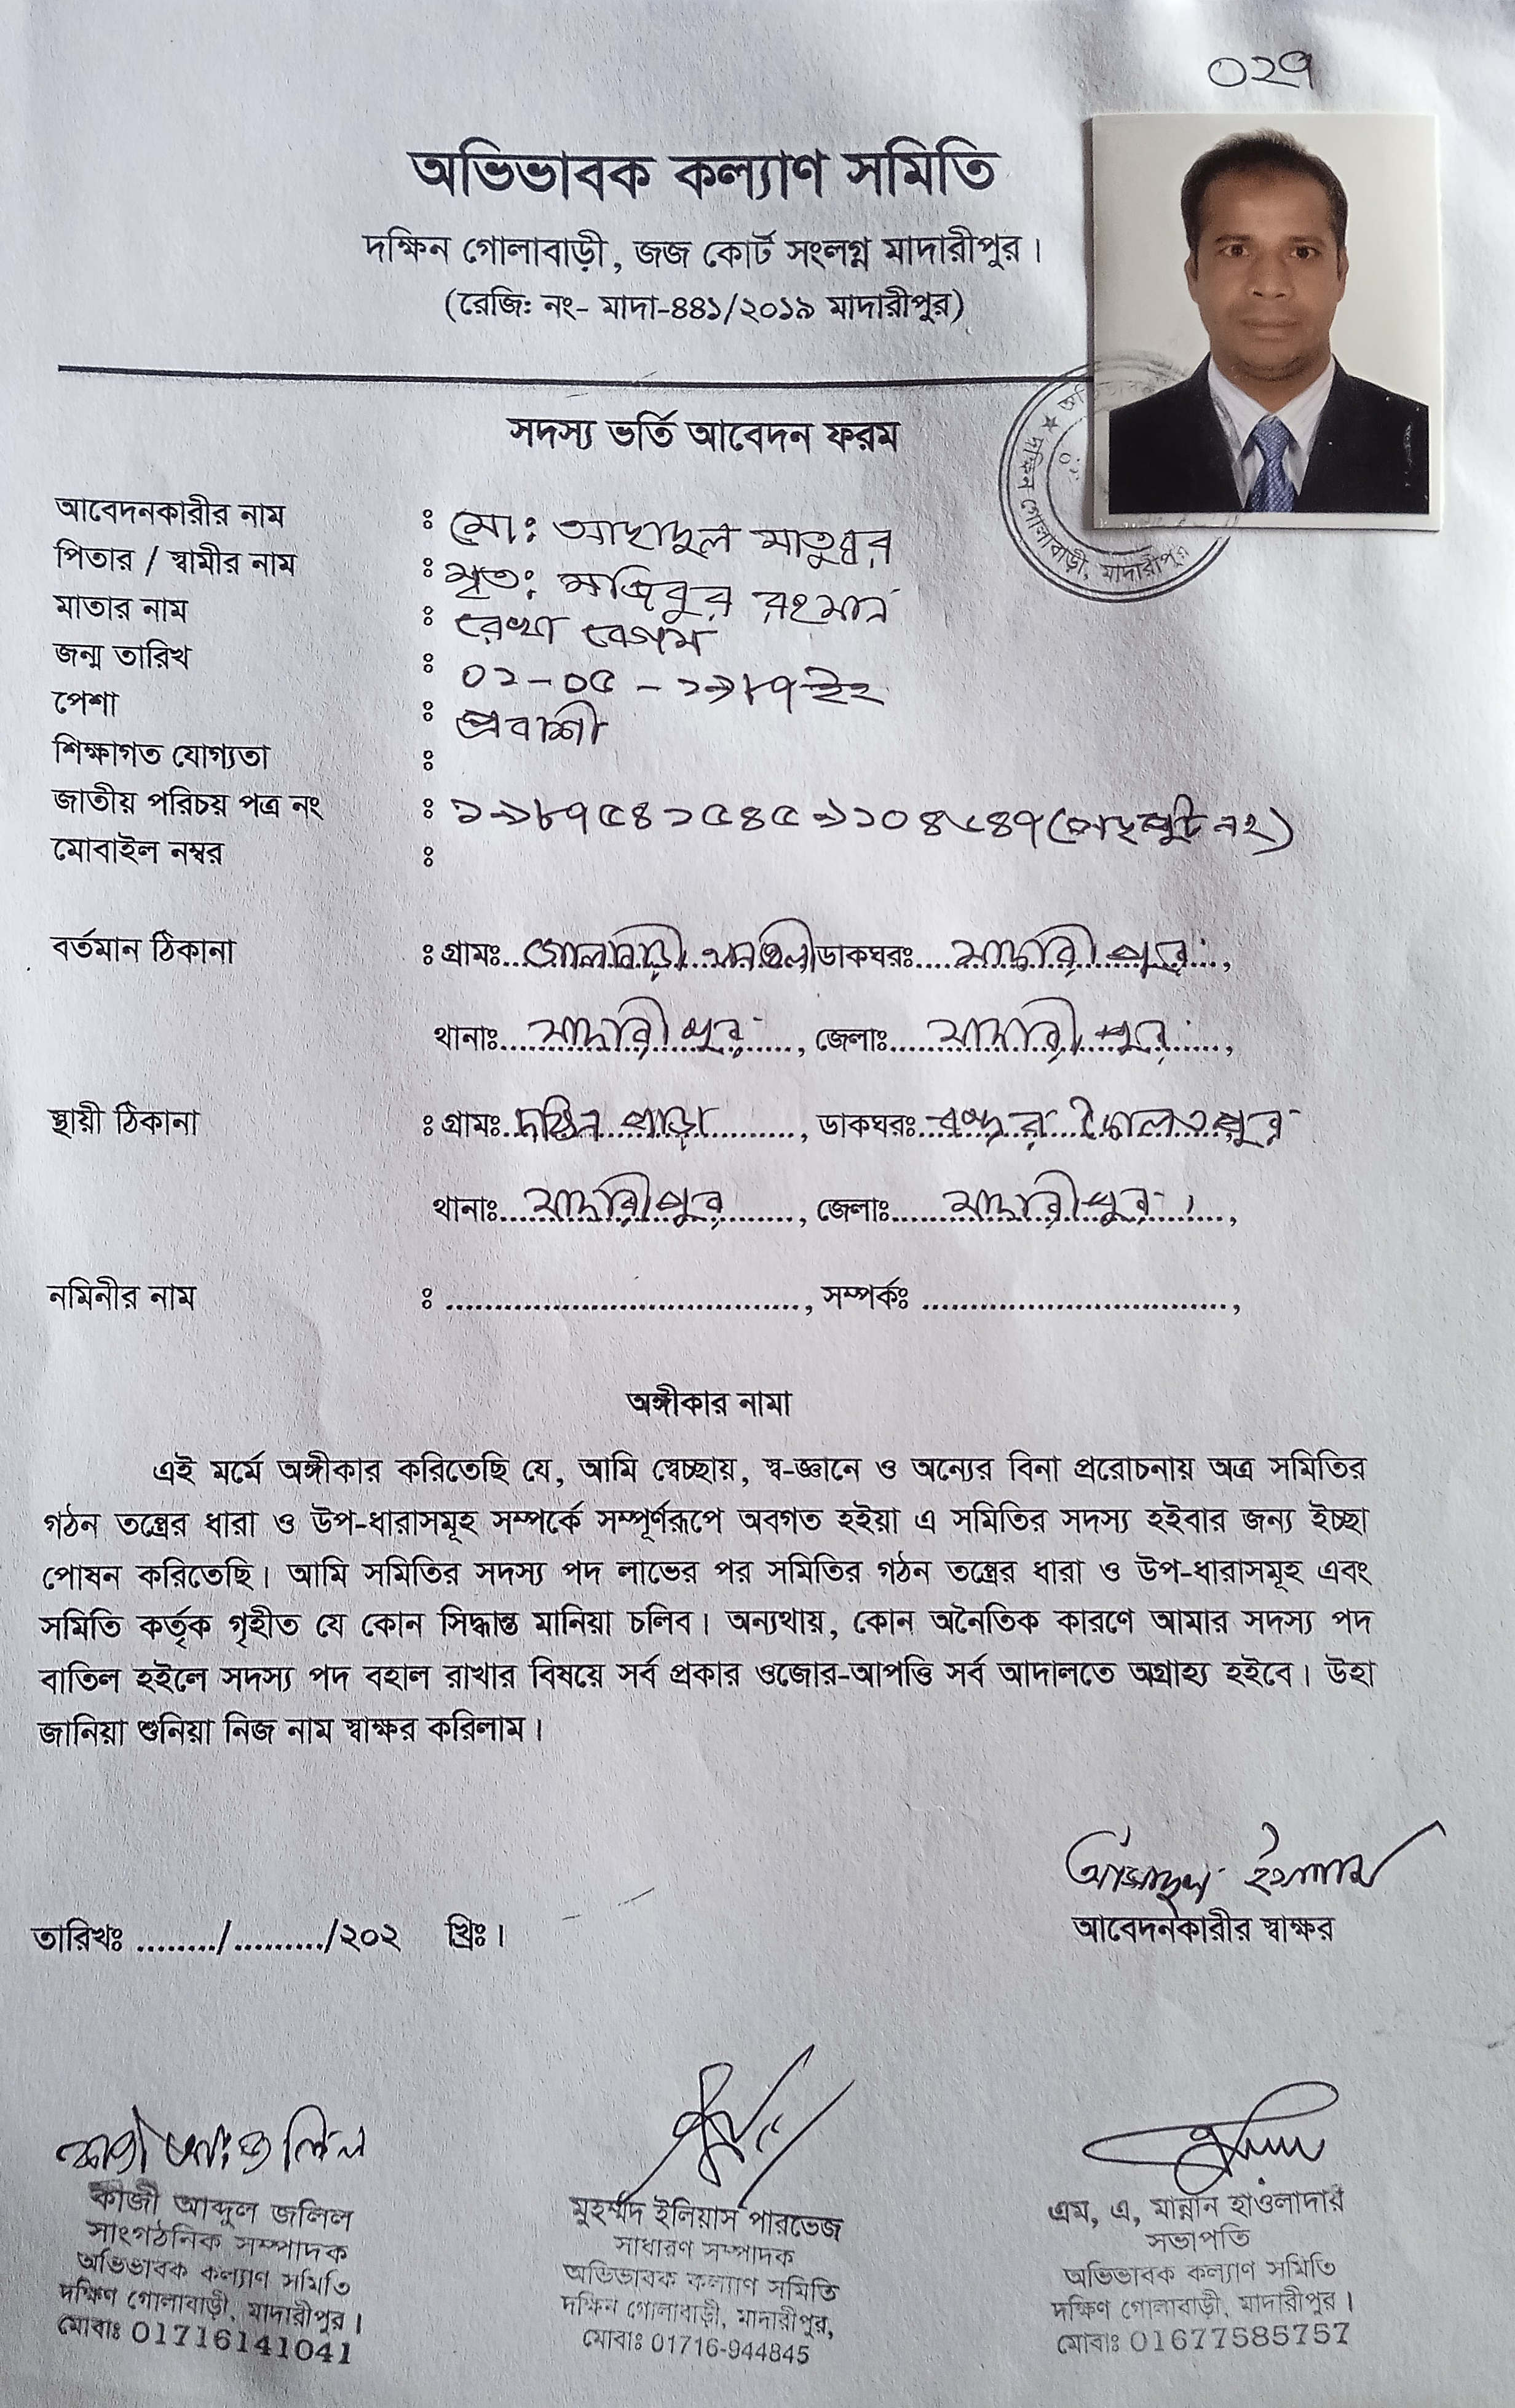 ০২৭
অভিভাবক কল্যাণ সমিতি
দক্ষিন গোলাবাড়ী, জজ কোর্ট সংলগ্ন মাদারীপুর।
(রেজি: নং- মাদা-৪৪১/২০১৯ মাদারীপুর)
দক্ষিন গোলাবাড়ী, মাদারীপুর
সদস্য ভর্তি আবেদন ফরম
আবেদনকারীর নাম : মো: আছাদুল মাতুব্বর
পিতার / স্বামীর নাম : মৃত: মজিবুর রহমান
মাতার নাম : রেখা বেগম
জন্ম তারিখ : ০২-০৫-১৯৮৭ইং
পেশা : প্রবাশী
শিক্ষাগত যোগ্যতা :
জাতীয় পরিচয় পত্র নং :
মোবাইল নম্বর :
বর্তমান ঠিকানা : গ্রামঃ গোলাবাড়ী ডাকঘরঃ মাদারীপুর,
থানাঃ মাদারীপুর, জেলাঃ মাদারীপুর,
স্থায়ী ঠিকানা : গ্রামঃ দক্ষিন পাড়া, ডাকঘরঃ দৌলতপুর
থানাঃ মাদারীপুর, জেলাঃ মাদারীপুর,
নমিনীর নাম : ...................................., সম্পর্কঃ ...............................,
অঙ্গীকার নামা
এই মর্মে অঙ্গীকার করিতেছি যে, আমি স্বেচ্ছায়, স্ব-জ্ঞানে ও অন্যের বিনা প্ররোচনায় অত্র সমিতির
গঠন তন্ত্রের ধারা ও উপ-ধারাসমূহ সম্পর্কে সম্পূর্ণরূপে অবগত হইয়া এ সমিতির সদস্য হইবার জন্য ইচ্ছা
পোষন করিতেছি। আমি সমিতির সদস্য পদ লাভের পর সমিতির গঠন তন্ত্রের ধারা ও উপ-ধারাসমূহ এবং
সমিতি কর্তৃক গৃহীত যে কোন সিদ্ধান্ত মানিয়া চলিব। অন্যথায়, কোন অনৈতিক কারণে আমার সদস্য পদ
বাতিল হইলে সদস্য পদ বহাল রাখার বিষয়ে সর্ব প্রকার ওজোর-আপত্তি সর্ব আদালতে অগ্রাহ্য হইবে। উহা
জানিয়া শুনিয়া নিজ নাম স্বাক্ষর করিলাম।
আসাদুল ইসলাম
তারিখঃ ......../........./২০২ খ্রিঃ। আবেদনকারীর স্বাক্ষর
কাজী আব্দুল জলিল
সাংগঠনিক সম্পাদক
অভিভাবক কল্যাণ সমিতি
দক্ষিণ গোলাবাড়ী, মাদারীপুর।
মোবাঃ 01716141041
মুহম্মদ ইলিয়াস পারভেজ
সাধারণ সম্পাদক
অভিভাবক কল্যাণ সমিতি
দক্ষিন গোলাবাড়ী, মাদারীপুর,
মোবাঃ 01716-944845
এম, এ, মান্নান হাওলাদার
সভাপতি
অভিভাবক কল্যাণ সমিতি
দক্ষিণ গোলাবাড়ী, মাদারীপুর।
মোবাঃ 01677585757